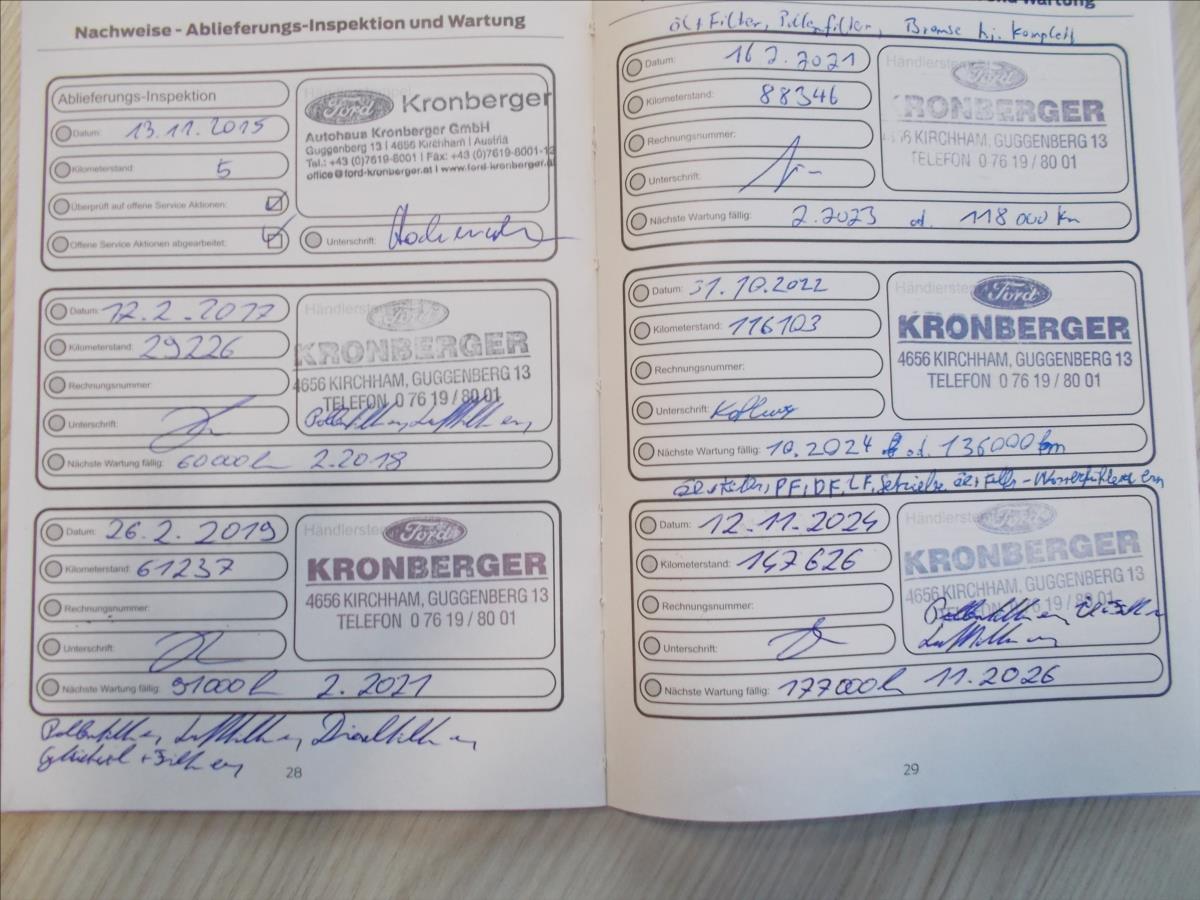 Nachweise - Ablieferungs-Inspektion und Wartung
Ablieferungs-Inspektion
Datum: 13.11.2015
Kilometerstand: 5
Überprüft auf offene Service Aktionen:
Offene Service Aktionen abgearbeitet:
Ford Kronberger
Autohaus Kronberger GmbH
Guggenberg 13 | 4656 Kirchham | Austria
Tel.: +43 (0)7619-8001 | Fax: +43 (0)7619-8001-12
office@ford-kronberger.at | www.ford-kronberger.at
Unterschrift:
Datum: 12.2.2017
Kilometerstand: 29226
Rechnungsnummer:
Unterschrift:
Nächste Wartung fällig: 60000 2.2018
Ford
KRONBERGER
4656 KIRCHHAM, GUGGENBERG 13
TELEFON 0 76 19 / 80 01
Datum: 26.2.2019
Kilometerstand: 61237
Rechnungsnummer:
Unterschrift:
Nächste Wartung fällig: 91000 2.2021
Ford
KRONBERGER
4656 KIRCHHAM, GUGGENBERG 13
TELEFON 0 76 19 / 80 01
28
Wartung
Öl+Filter, Pollenfilter, Bremse hi. komplett
Datum: 16.2.2021
Kilometerstand: 88346
Rechnungsnummer:
Unterschrift:
Nächste Wartung fällig: 2.2023 od. 118000 km
Ford
KRONBERGER
4656 KIRCHHAM, GUGGENBERG 13
TELEFON 0 76 19 / 80 01
Datum: 31.10.2022
Kilometerstand: 116103
Rechnungsnummer:
Unterschrift:
Nächste Wartung fällig: 10.2024 od. 136000 km
Händlerstempel
Ford
KRONBERGER
4656 KIRCHHAM, GUGGENBERG 13
TELEFON 0 76 19 / 80 01
PF, DF, LF,
Datum: 12.11.2024
Kilometerstand: 147626
Rechnungsnummer:
Unterschrift:
Nächste Wartung fällig: 177000 11.2026
Ford
KRONBERGER
4656 KIRCHHAM, GUGGENBERG 13
TELEFON 0 76 19 / 80 01
29